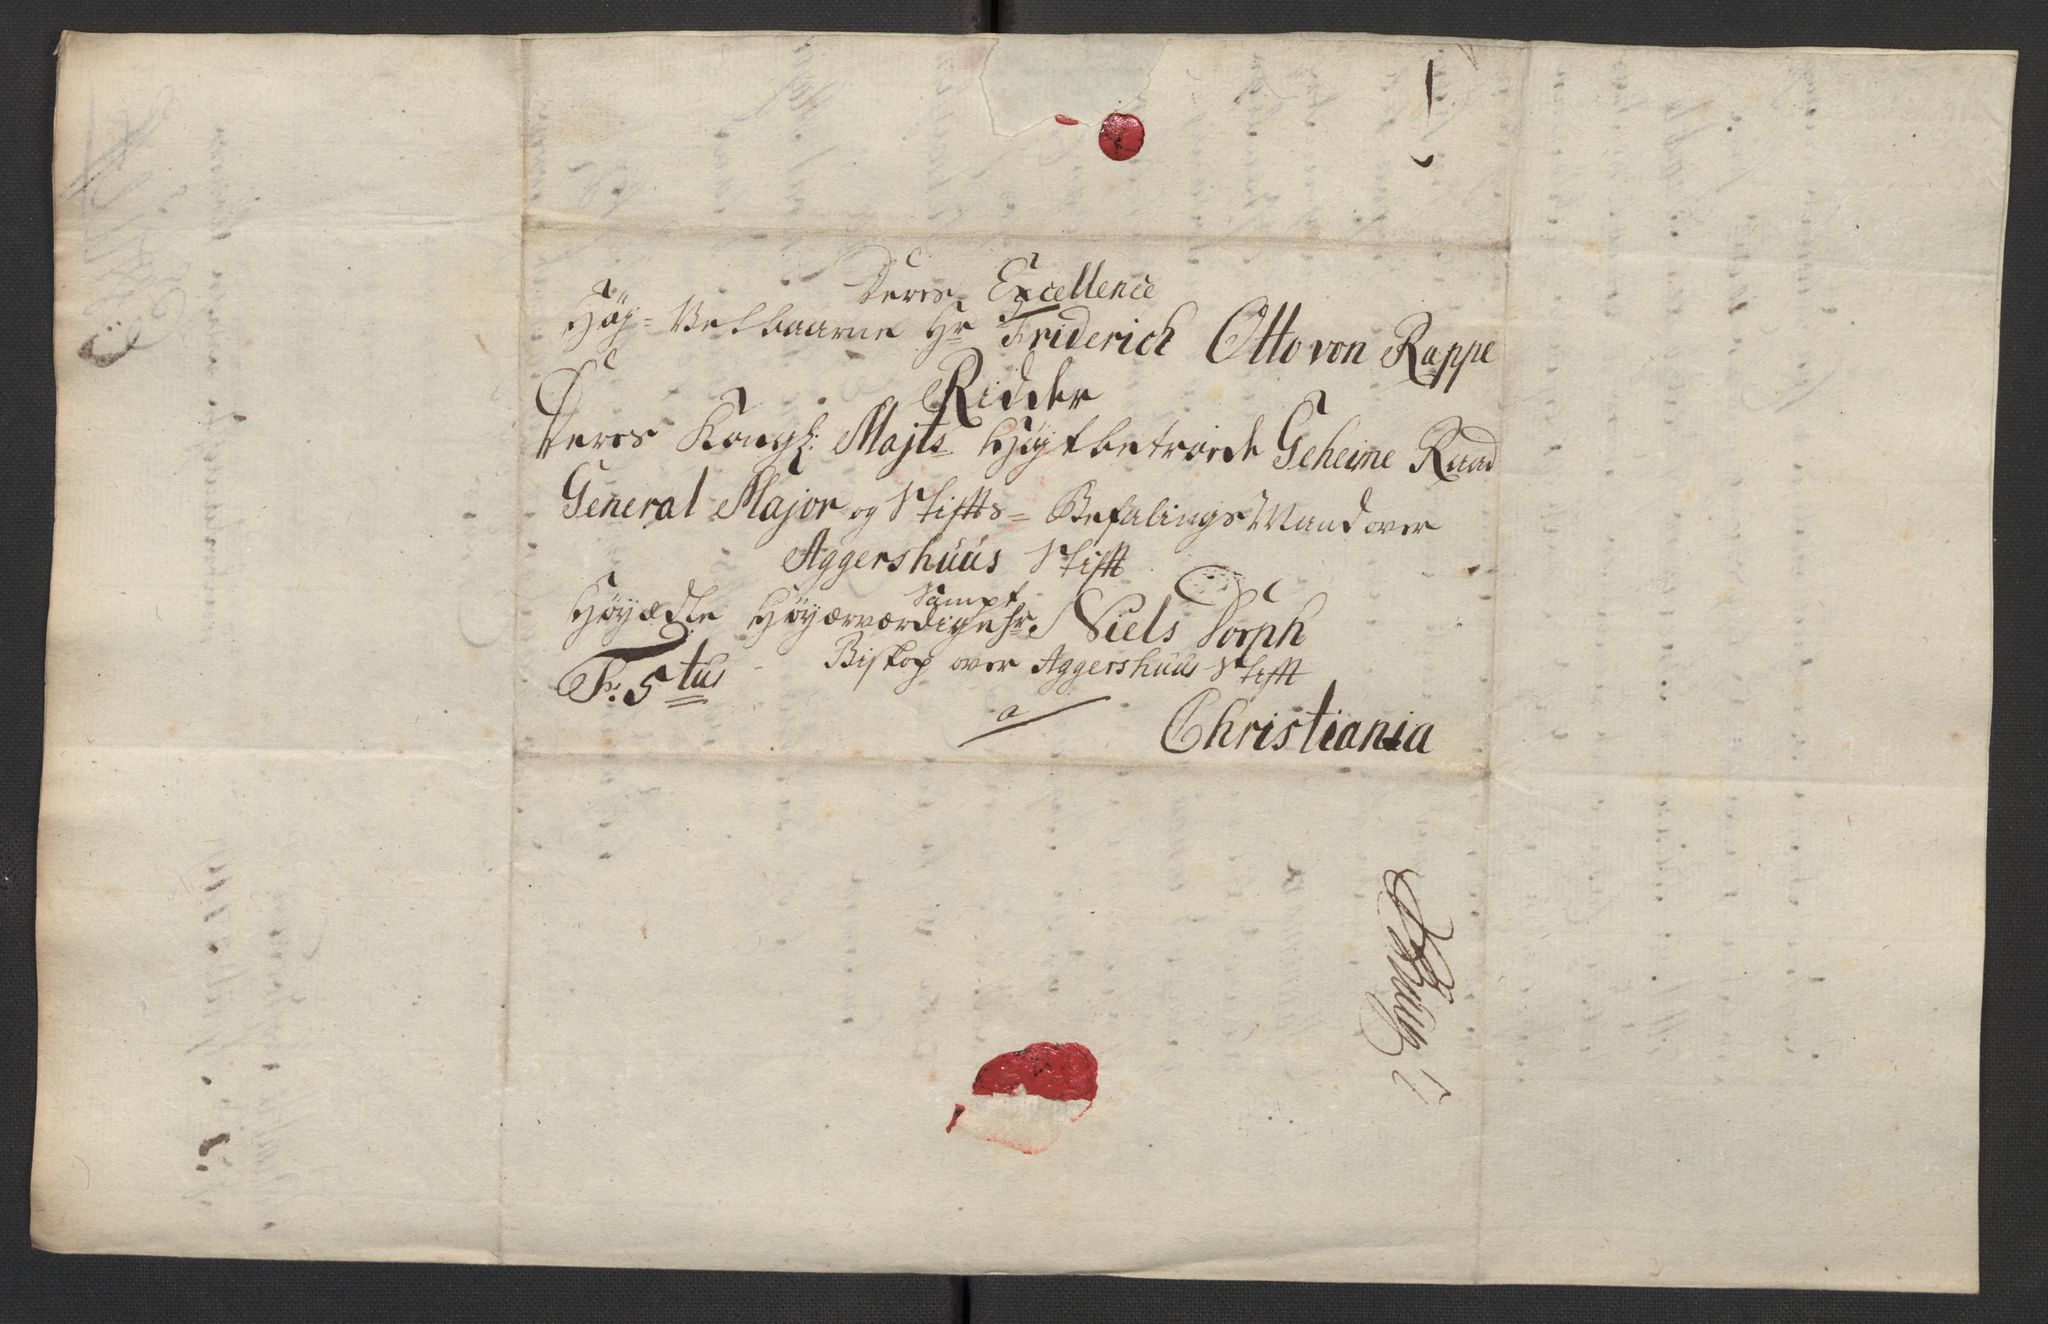 Deres Excellence
Høy-Velbaarne Hr Friderich Otto von Rappe
Ridder
Deres Kongl: Majts Høyt betroede Geheime Raad
General Major og Stiffts-Befalings Mand over
Aggershuus Stifft
Sampt
Høyædle Høyærværdige Hr. Niels Dorph
Biskop over Aggershuus Stifft
Fr. 5tus
a
Christiania